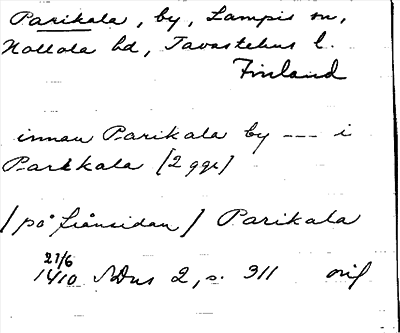 Parikala, by, Lampis sn,
Hollola hd, Tavastehus l.
Finland
innan Parikala by --- i
Parkkala [2 ggr]
[på frånsidan] Parikala
21/6
1410 SDns 2, s. 911 orig